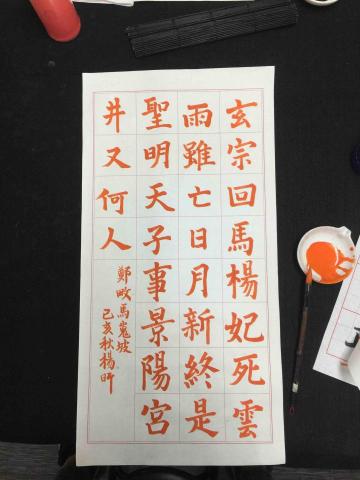 玄宗回馬楊妃死雲
雨雖亡日月新終是
聖明天子事景陽宮
井又何人
鄭畋馬嵬坡
己亥秋楊昕